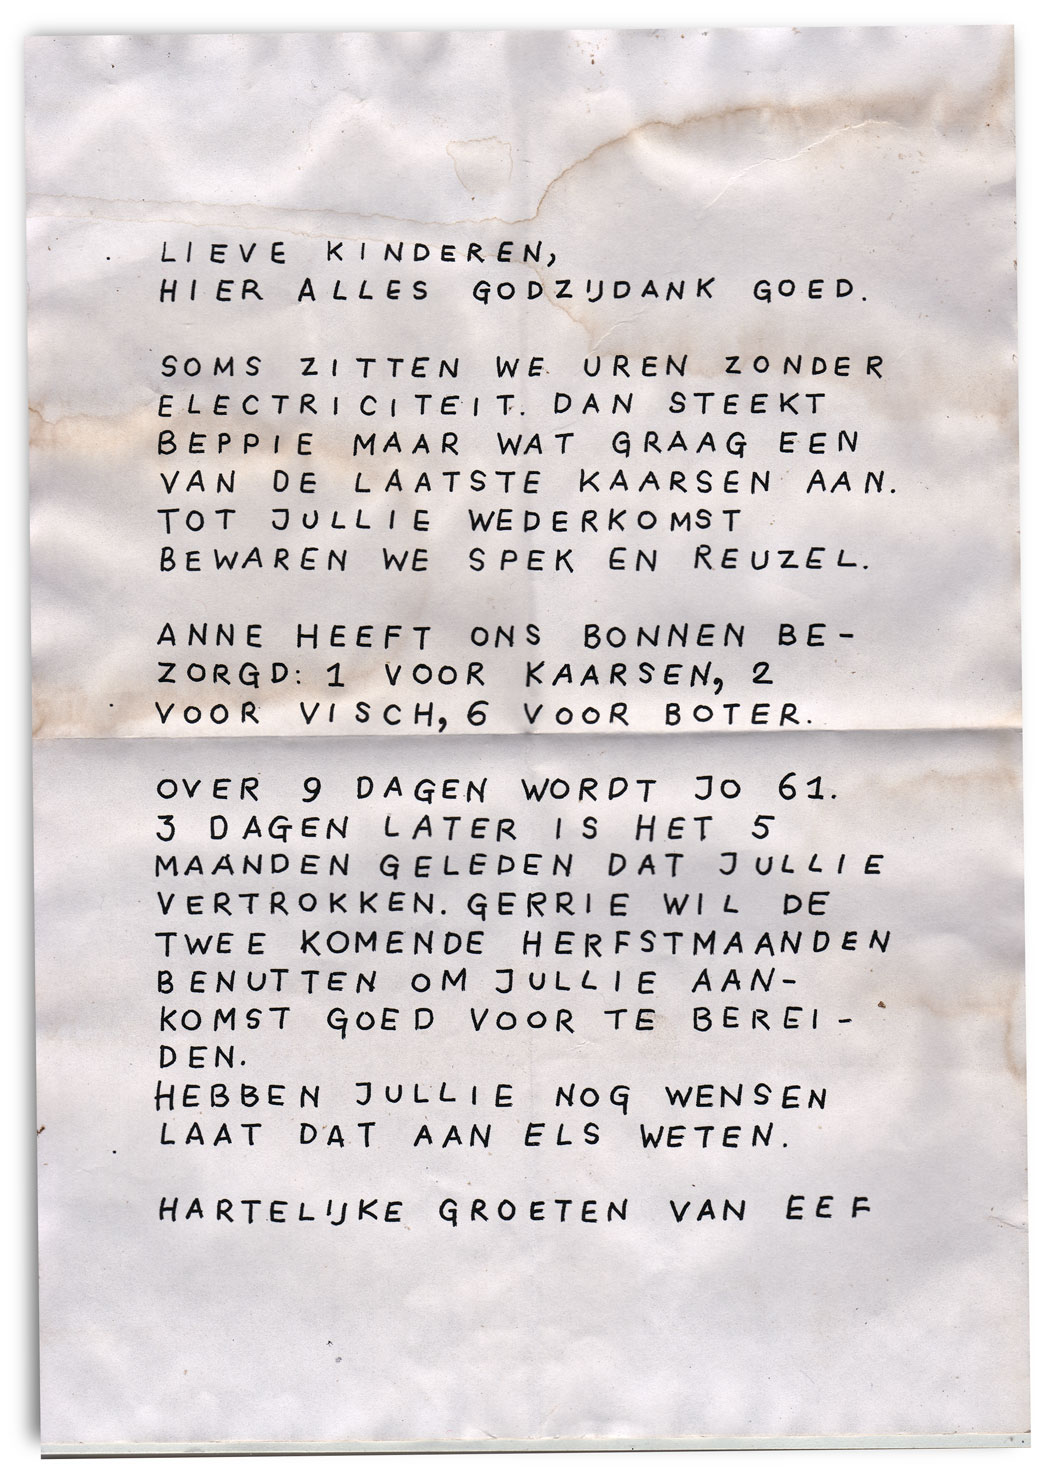 LIEVE KINDEREN,
HIER ALLES GODZIJDANK GOED.
SOMS ZITTEN WE UREN ZONDER
ELECTRICITEIT. DAN STEEKT
BEPPIE MAAR WAT GRAAG EEN
VAN DE LAATSTE KAARSEN AAN.
TOT JULLIE WEDERKOMST
BEWAREN WE SPEK EN REUZEL.
ANNE HEEFT ONS BONNEN BE-
ZORGD: 1 VOOR KAARSEN, 2
VOOR VISCH, 6 VOOR BOTER.
OVER 9 DAGEN WORDT JO 61.
3 DAGEN LATER IS HET 5
MAANDEN GELEDEN DAT JULLIE
VERTROKKEN. GERRIE WIL DE
TWEE KOMENDE HERFSTMAANDEN
BENUTTEN OM JULLIE AAN-
KOMST GOED VOOR TE BEREI-
DEN.
HEBBEN JULLIE NOG WENSEN
LAAT DAT AAN ELS WETEN.
HARTELIJKE GROETEN VAN EEF